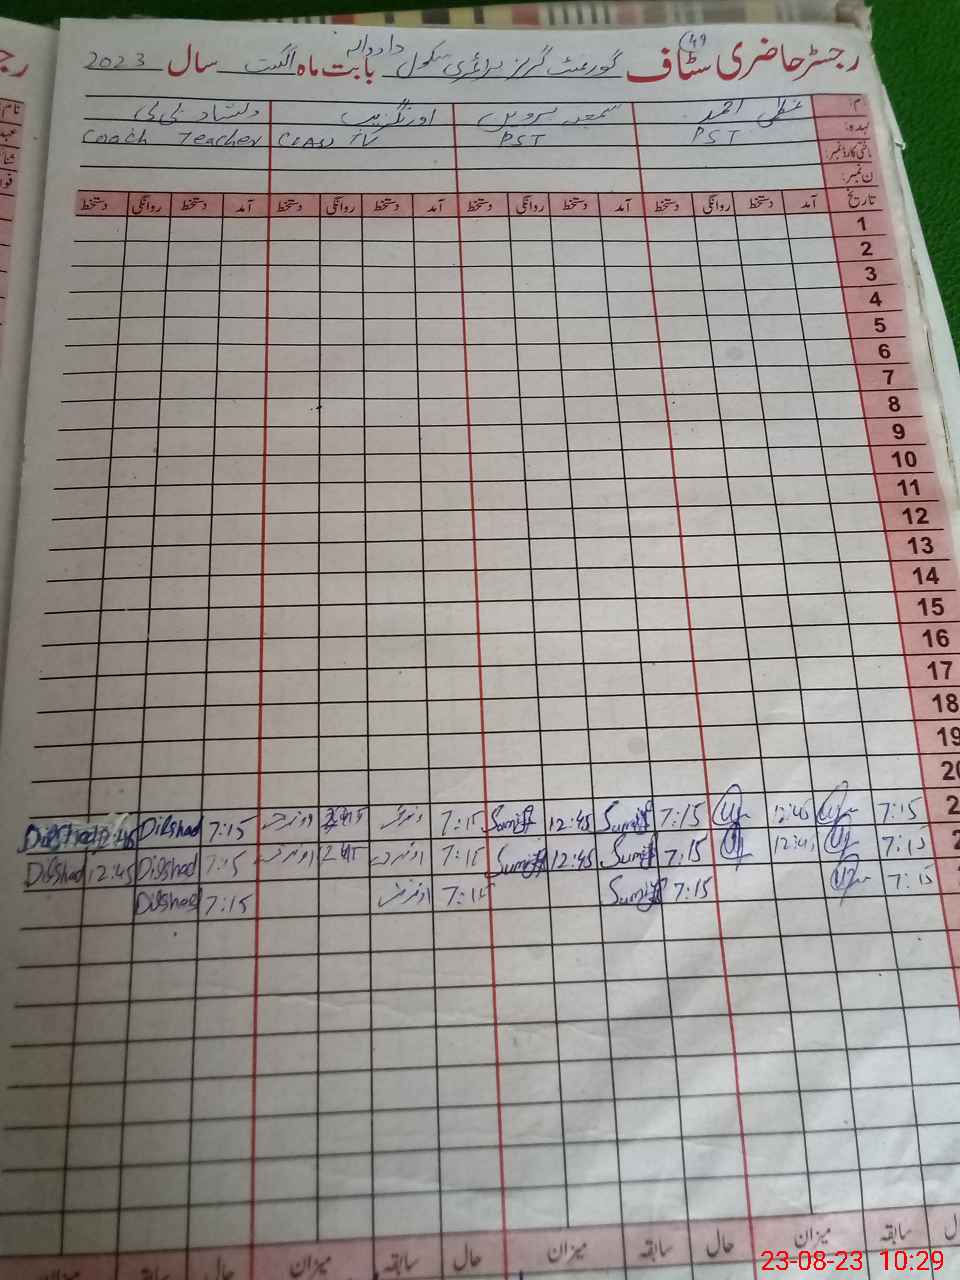 رجسٹر حاضری سٹاف گورنمنٹ گرلز پرائمری سکول دادوالہ بابت ماہ اگست سال 2023
49
نام: عظمیٰ احمد سمیعہ پروین اورنگزیب دلشاد بی بی
عہدہ: PST PST Class IV Coach Teacher
شناختی کارڈ نمبر:
فون نمبر:
تاریخ آمد دستخط روانگی دستخط آمد دستخط روانگی دستخط آمد دستخط روانگی دستخط آمد دستخط روانگی دستخط
1
2
3
4
5
6
7
8
9
10
11
12
13
14
15
16
17
18
19
20
2 7:15 12:45 7:15 Sumiya 12:45 Sumiya 7:15 7:15 Dilshad 12:45 Dilshad
2 7:15 12:45 7:15 Sumiya 12:45 Sumiya 7:15 7:15 Dilshad 12:45 Dilshad
7:15 7:15 Sumiya 7:15 7:15 Dilshad
حال سابقہ میزان حال سابقہ میزان حال سابقہ میزان حال سابقہ میزان
23-08-23 10:29